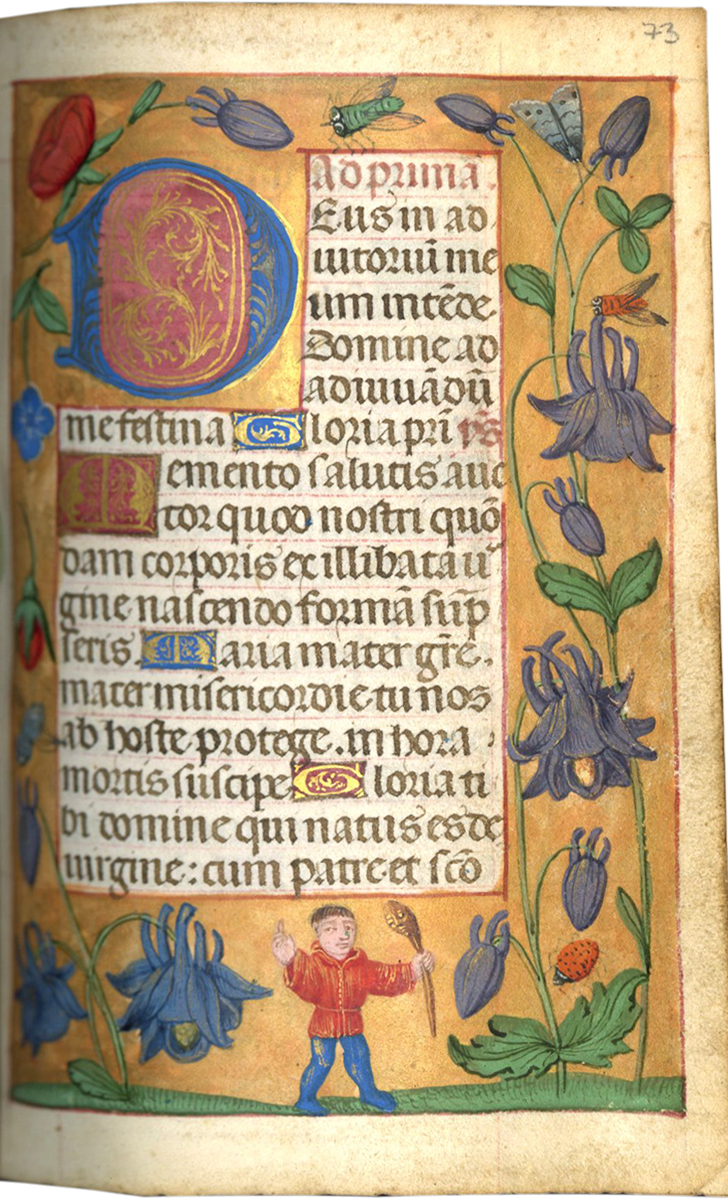 73
Ad primā.
Eus in ad
iutoriū me
um intēde.
Domine ad
adiuuādū
me festina Gloria pr̄i
Memento salutis auc
tor quod nostri quō
dam corporis ex illibata ū
gine nascendo formā sūp
seris. Maria mater gr̄e.
mater misericordie tu nos
ab hoste protege. in hora
mortis suscipe Gloria ti
bi domine qui natus es de
uirgine: cum patre et scō